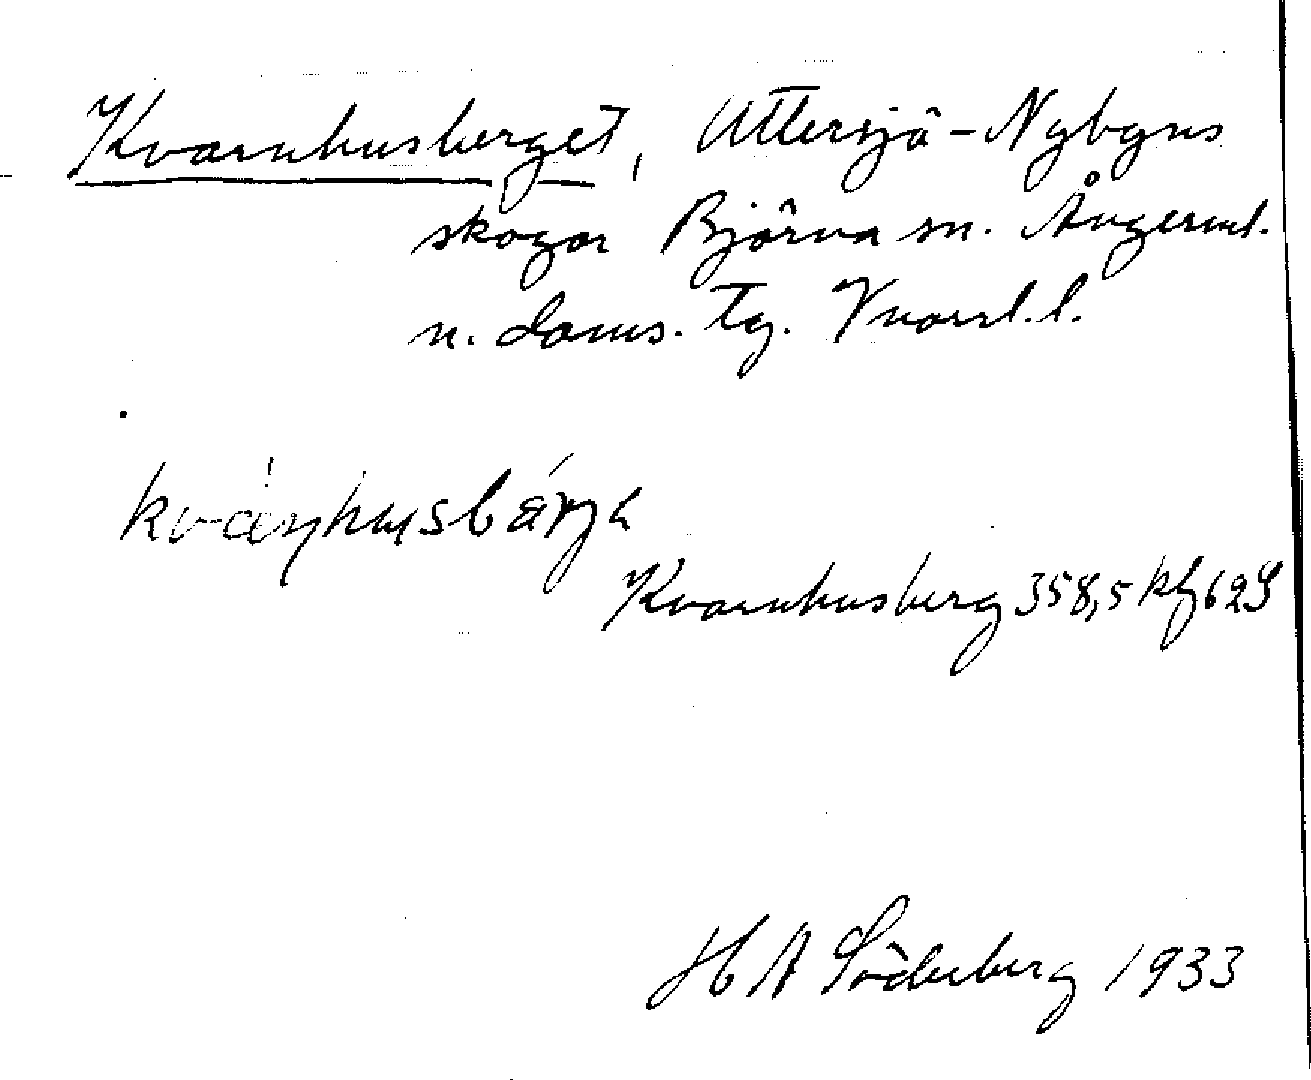 Kvarnhusberget, Uttersjö-Nybgns
skogar Björna sn. Ångerml.
n. doms. tg. Vnorrl. l.
Kvarnhusberg 358,5 kbl 62S
H A Söderberg 1933